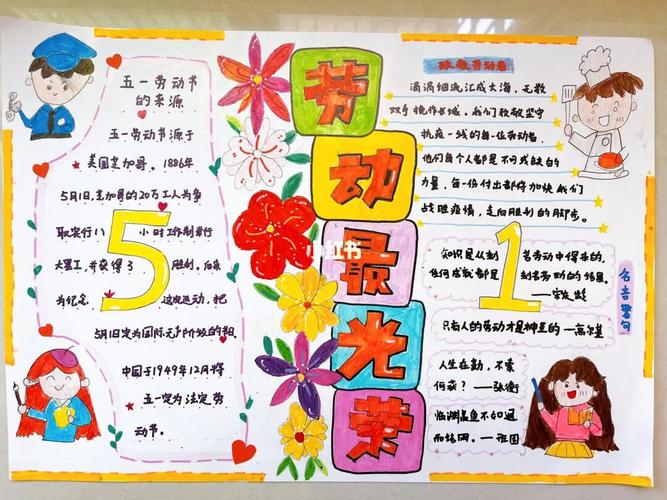 五一劳动节
的来源
五一劳动节源于
美国芝加哥。1886年
5月1日,芝加哥的20万工人为争
取实行八小时工作制举行
大罢工,并获得了胜利。后来
为纪念这次运动,把
5月1日定为国际无产阶级的
中国于1949年12月将
五一定为法定劳
动节。
5
劳
动
最
光
荣
小红书
致敬劳动者
涓涓细流汇成大海,无数
双手挽作长城。我们致敬坚守
抗疫一线的每一位劳动者,
他们每个人都是不可或缺的
力量,每一份付出都将加快我们
战胜疫情,走向胜利的脚步。
1
知识是从刻苦劳动中得来的,
任何成就都是刻苦劳动的结果。
——宋庆龄
名言警句
只有人的劳动才是神圣的—高尔基
人生在勤,不索
何获?——张衡
临渊羡鱼不如退
而结网。—班固